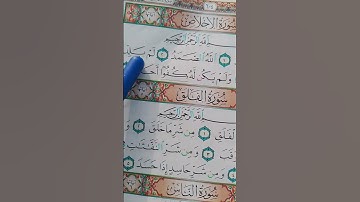 سُورَةُ الْإِخْلَاصِ
اللَّهِ الرَّحْمَٰنِ الرَّحِيمِ
اللَّهُ الصَّمَدُ ٢ لَمْ يَلِدْ
وَلَمْ يَكُن لَّهُ كُفُوًا
سُورَةُ الْفَلَقِ
اللَّهِ الرَّحْمَٰنِ الرَّحِيمِ
الْفَلَقِ ١ مِن شَرِّ مَا خَلَقَ ٢ وَمِن
وَقَبَ ٣ وَمِن شَرِّ النَّفَّاثَاتِ
وَمِن شَرِّ حَاسِدٍ إِذَا حَسَدَ ٥
سُورَةُ النَّاسِ